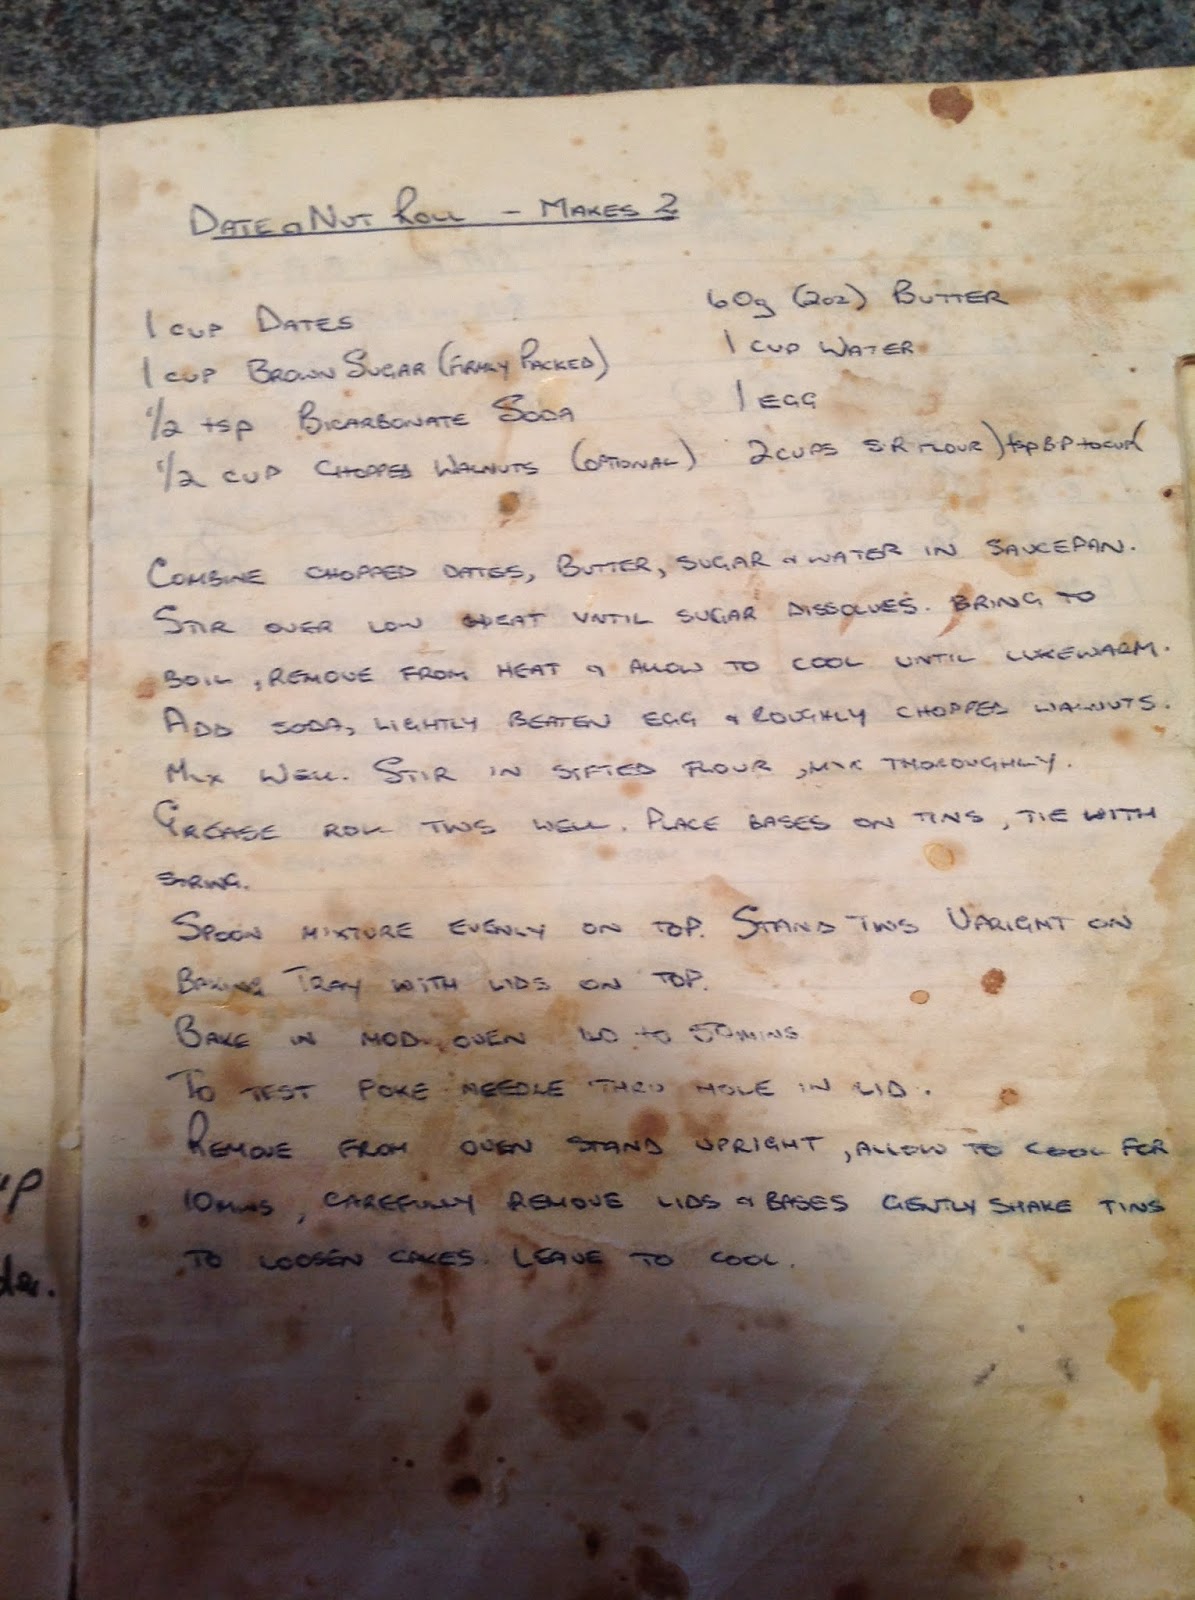 DATE & NUT ROLL - MAKES 2
1 CUP DATES
60g (2oz) BUTTER
1 CUP BROWN SUGAR (FIRMLY PACKED)
1 CUP WATER
1/2 tsp BICARBONATE SODA
1 EGG
1/2 CUP CHOPPED WALNUTS (OPTIONAL)
2 CUPS S.R FLOUR) tsp B.P to cup(
COMBINE CHOPPED DATES, BUTTER, SUGAR & WATER IN SAUCEPAN.
STIR OVER LOW HEAT UNTIL SUGAR DISSOLVES. BRING TO
BOIL, REMOVE FROM HEAT & ALLOW TO COOL UNTIL LUKEWARM.
ADD SODA, LIGHTLY BEATEN EGG & ROUGHLY CHOPPED WALNUTS.
MIX WELL. STIR IN SIFTED FLOUR, MIX THOROUGHLY.
GREASE ROLL TINS WELL. PLACE BASES ON TINS, TIE WITH
STRING.
SPOON MIXTURE EVENLY ON TOP. STAND TINS UPRIGHT ON
BAKING TRAY WITH LIDS ON TOP.
BAKE IN MOD. OVEN 40 to 50 MINS
TO TEST POKE NEEDLE THRU HOLE IN LID.
REMOVE FROM OVEN STAND UPRIGHT, ALLOW TO COOL FOR
10 MINS, CAREFULLY REMOVE LIDS & BASES GENTLY SHAKE TINS
TO LOOSEN CAKES. LEAVE TO COOL.